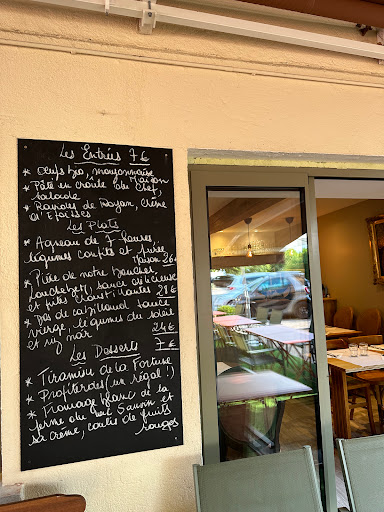 Les Entrées 7€
* Oeufs bio, mayonnaise
* Pâté en croûte du Chef, Maison
salade
* Ravioles de Royan, crème
d'Epoisses
Les Plats
* Agneau de 7 heures,
légumes confits et purée
Maison 26€
* Pièce de notre boucher,
bouchère, sauce délicieuse
et frites croustillantes 28€
* Dos de cabillaud sauce
vierge, légumes du soleil
et riz noir 24€
Les Desserts 7€
* Tiramisu de la Fortune
* Profiteroles (un régal!)
* Fromage blanc de la
ferme du Mas Sauvin et
sa crème, coulis de fruits
rouges